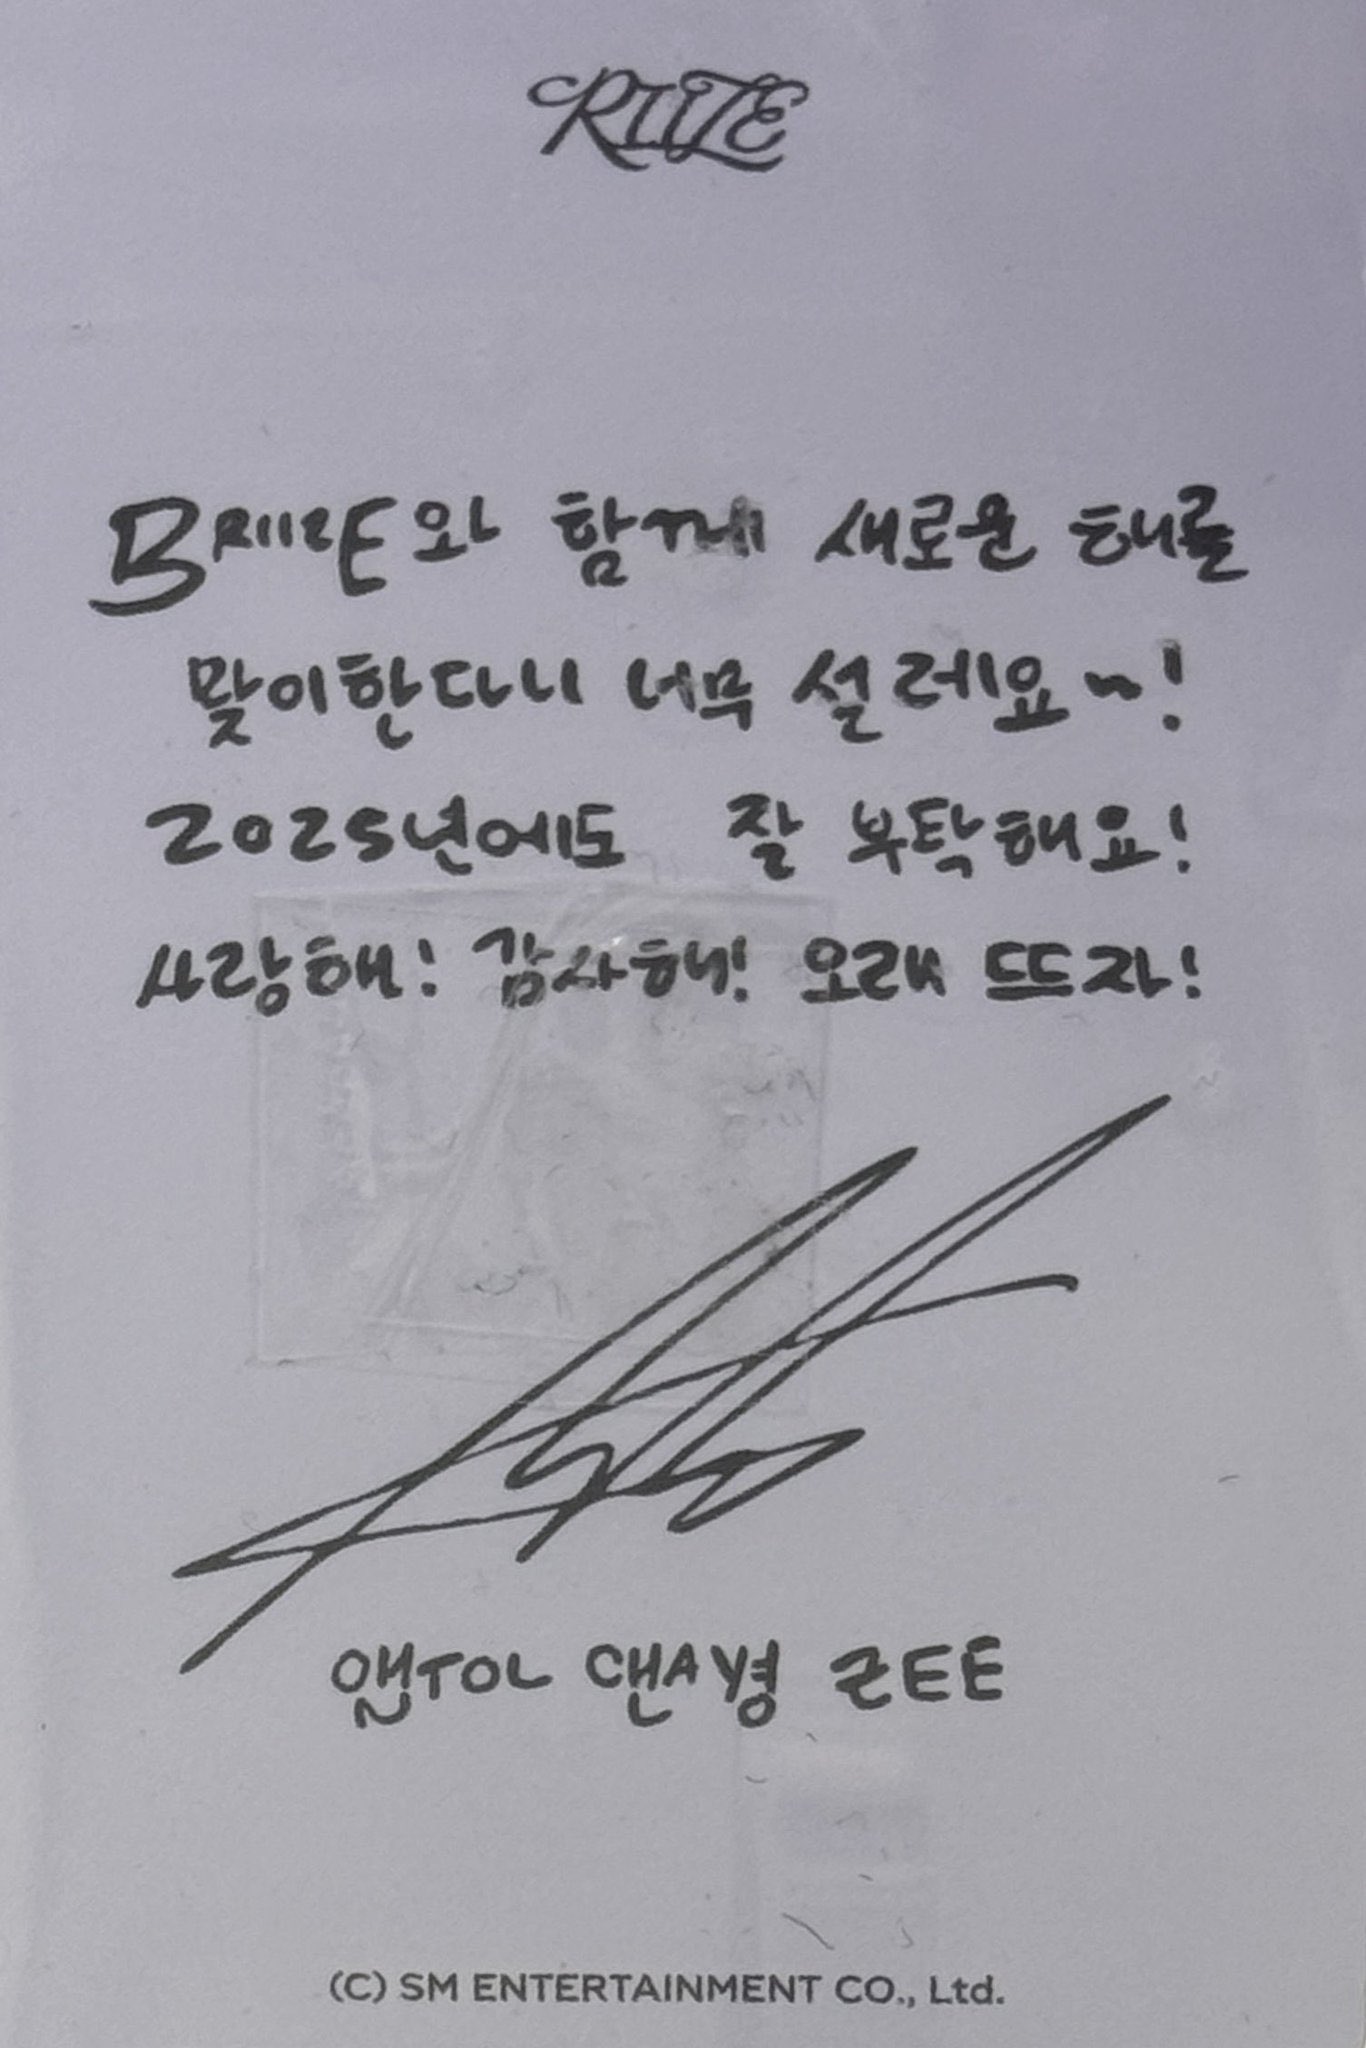 RIIZE
BRIIZE와 함께 새로운 해를
맞이한다니 너무 설레요~!
2025년에도 잘 부탁해요!
사랑해! 감사해! 오래 뜨자!
앤TOL ZEE
(C) SM ENTERTAINMENT CO., Ltd.